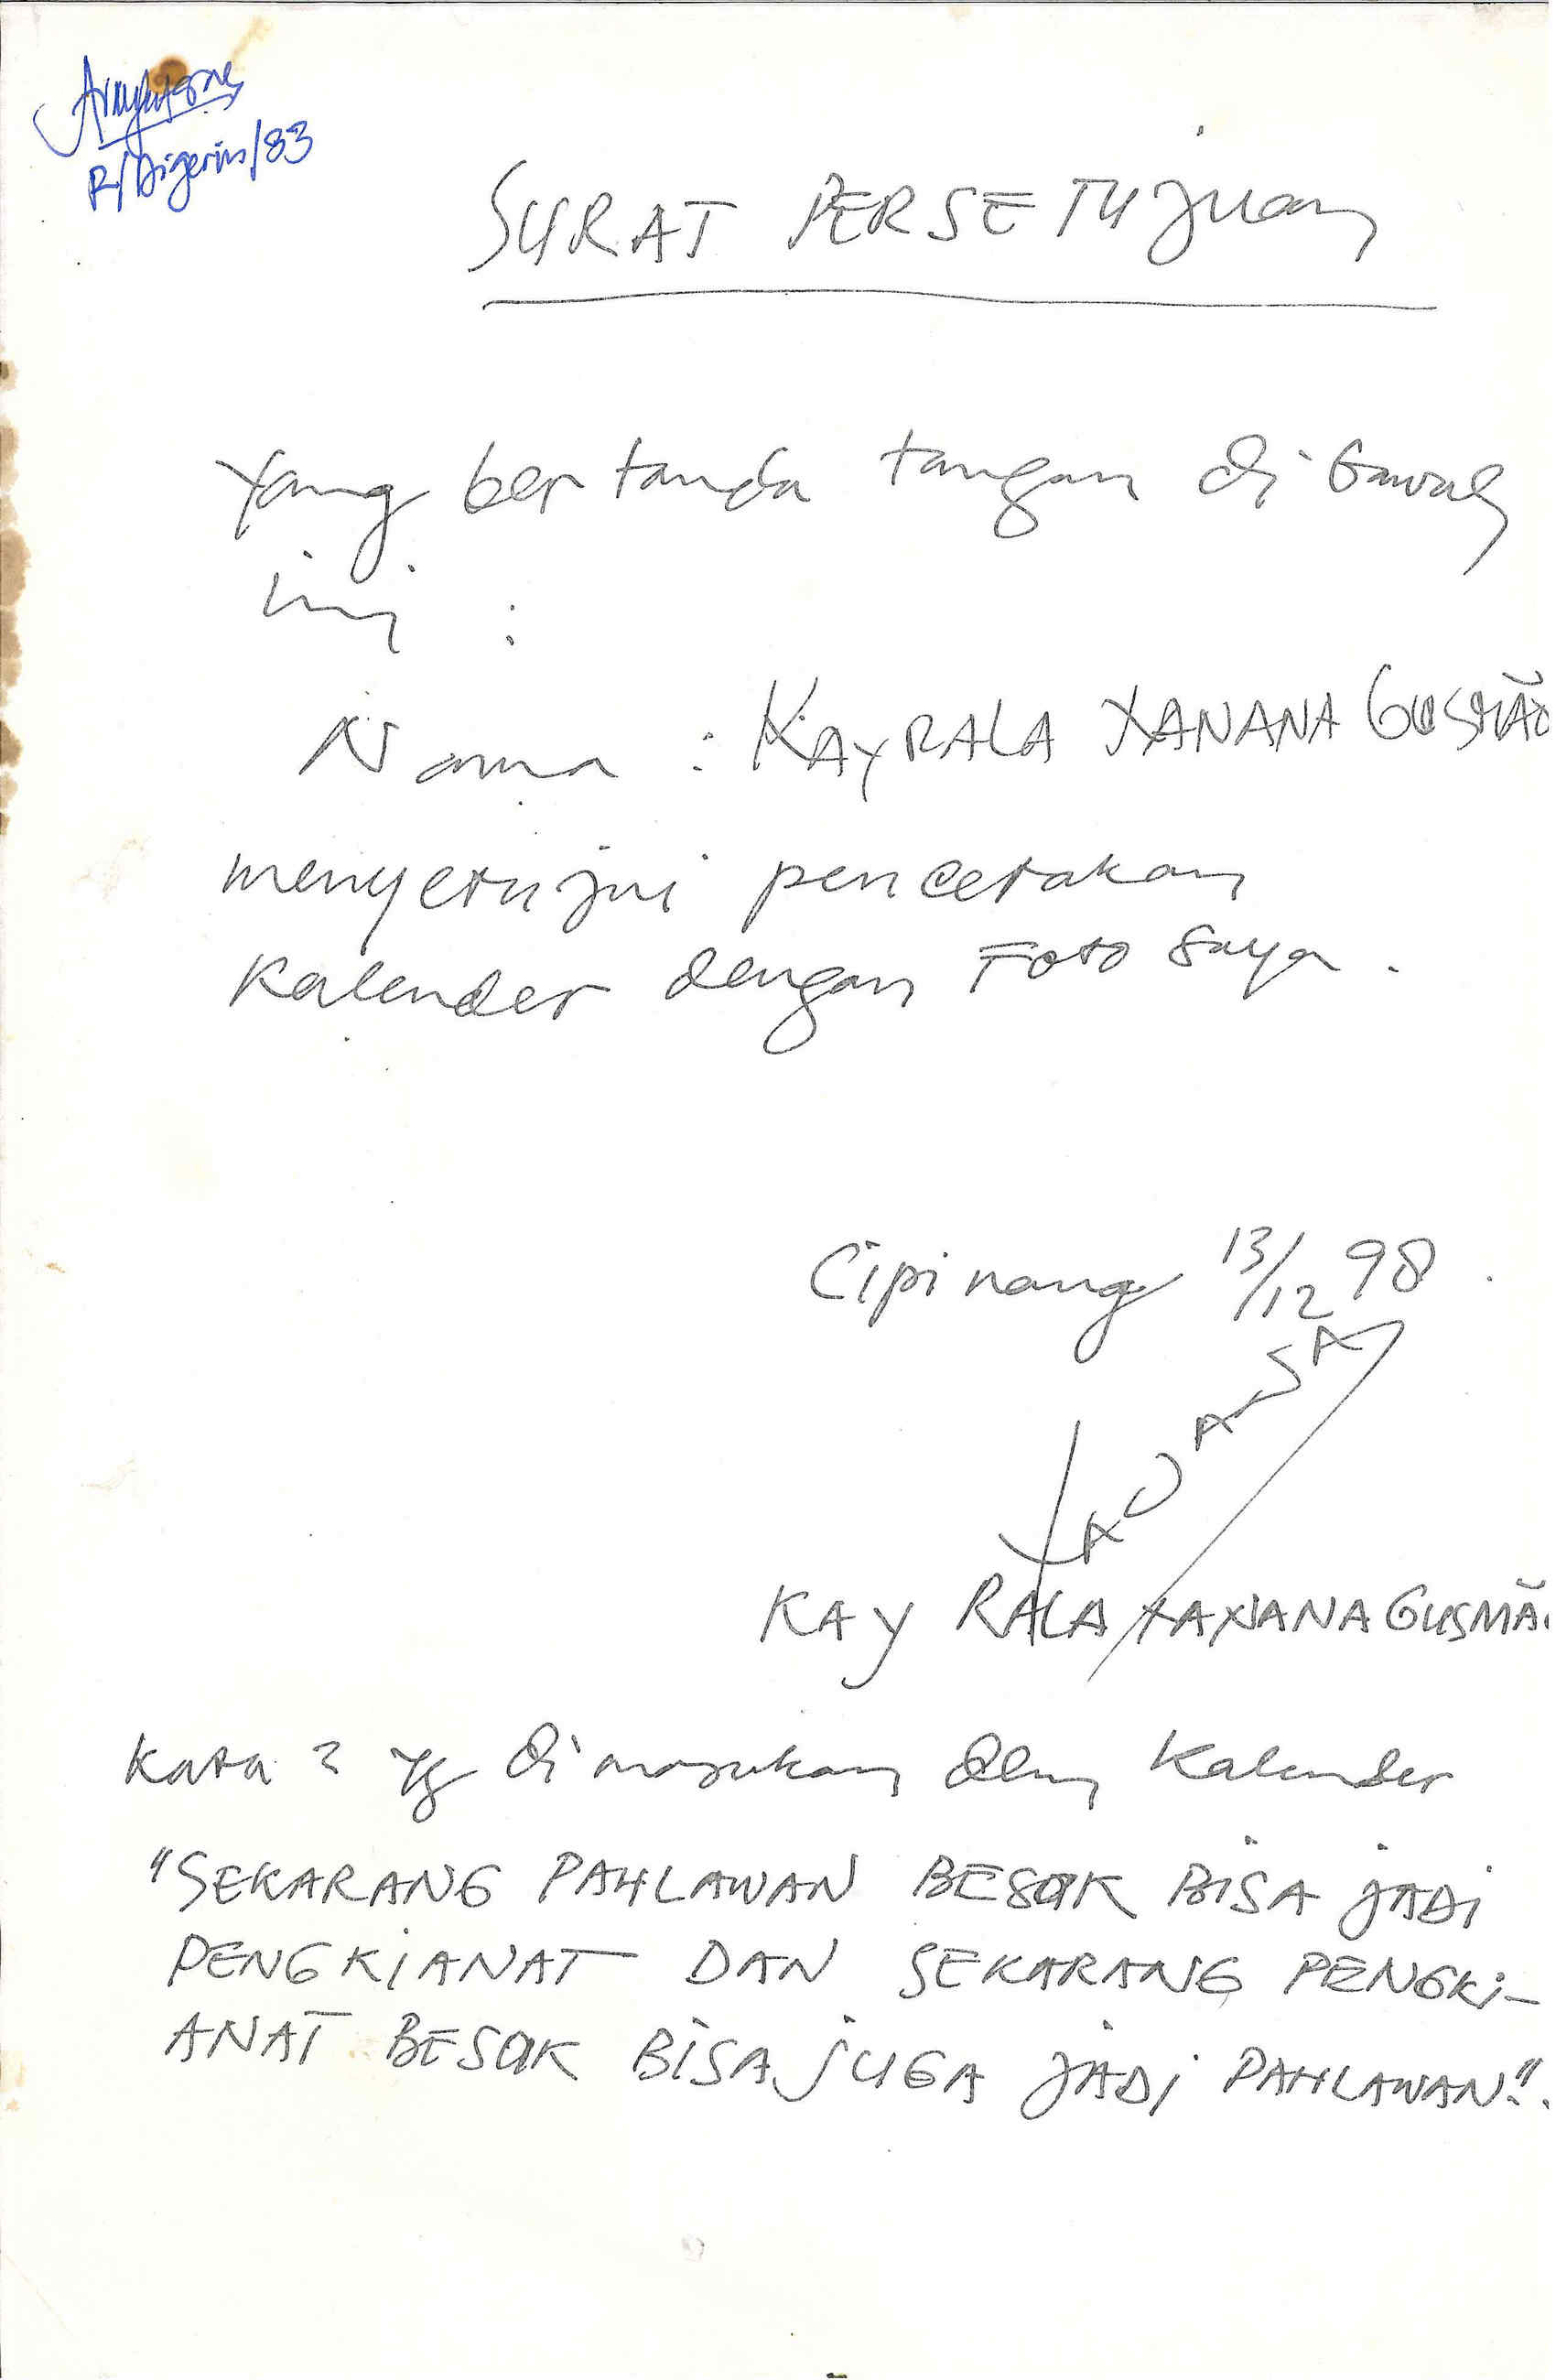 R/Digerius/83
SURAT PERSETUJUAN
Yang bertanda tangan di bawah
ini :
Nama : KAY RALA XANANA GUSMÃO
menyetujui pencetakan
Kalender dengan Foto saya.
Cipinang 13/12 98.
KAY RALA XANANA GUSMÃO
Kata2 yg dimasukan dlm Kalender
"SEKARANG PAHLAWAN BESOK BISA JADI
PENGKIANAT DAN SEKARANG PENGKI-
ANAT BESOK BISA JUGA JADI PAHLAWAN".